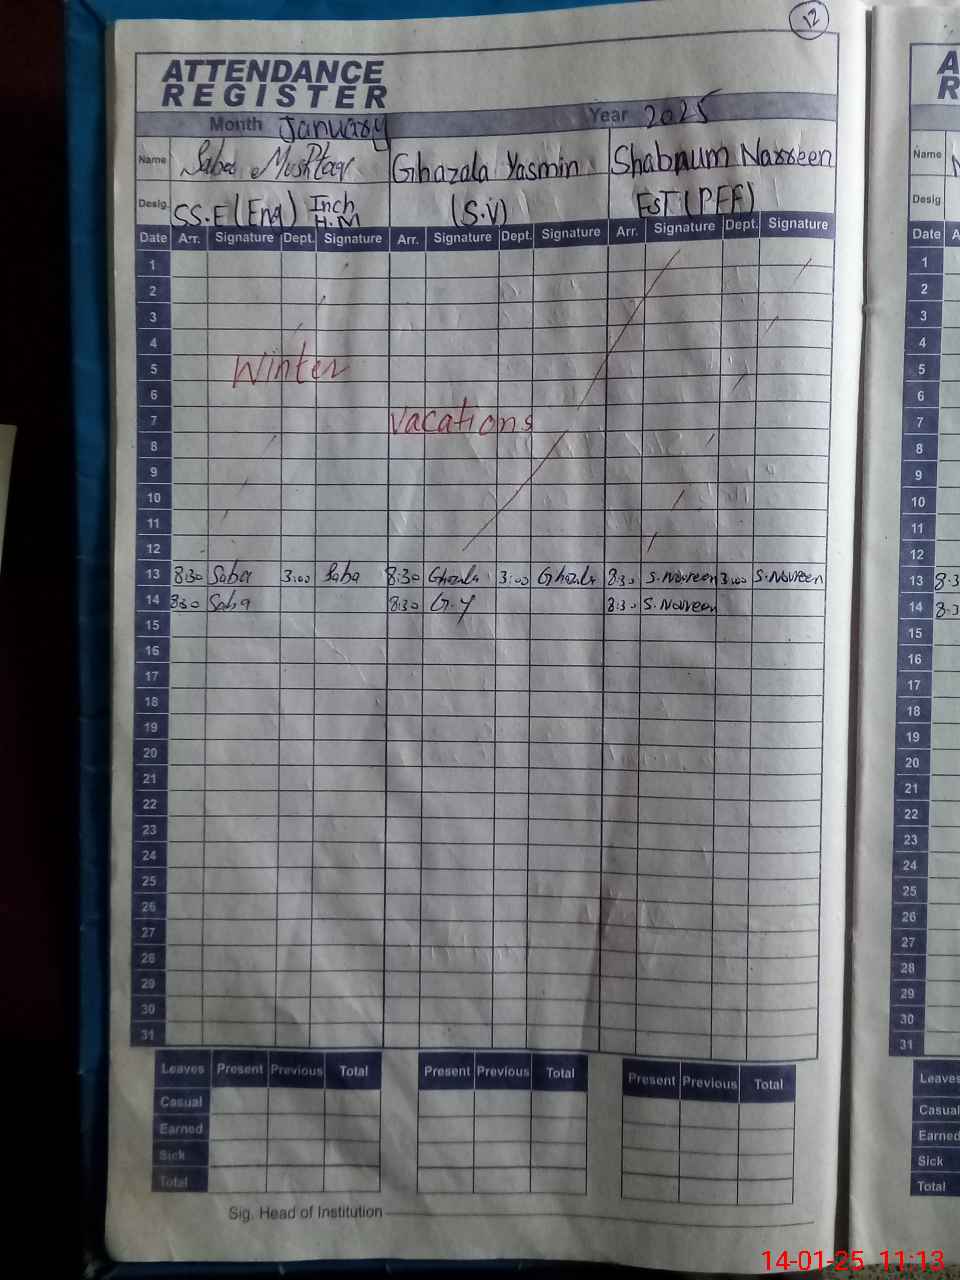 12
ATTENDANCE
REGISTER
Month January Year 2025
Name Saba Mushtaq Ghazala Yasmin Shabnum Narreen
Desig. SS.E (Eng) Inch H.M (S.V) EST (PEF)
Date Arr. Signature Dept. Signature Arr. Signature Dept. Signature Arr. Signature Dept. Signature
1
2
3
4
5 Winter
6
7 vacations
8
9
10
11
12
13 8:30 Saba 3:00 Saba 8:30 Ghazala 3:00 Ghazala 8:30 S.Noureen 3:00 S.Noureen
14 8:30 Saba 8:30 G.Y 8:30 S.Noureen
15
16
17
18
19
20
21
22
23
24
25
26
27
28
29
30
31
Leaves Present Previous Total Present Previous Total Present Previous Total
Casual
Earned
Sick
Total
Sig. Head of Institution
A
R
Name
Desig.
Date A
1
2
3
4
5
6
7
8
9
10
11
12
13 8:3
14 8:3
15
16
17
18
19
20
21
22
23
24
25
26
27
28
29
30
31
Leaves
Casual
Earned
Sick
Total
14-01-25 11:13